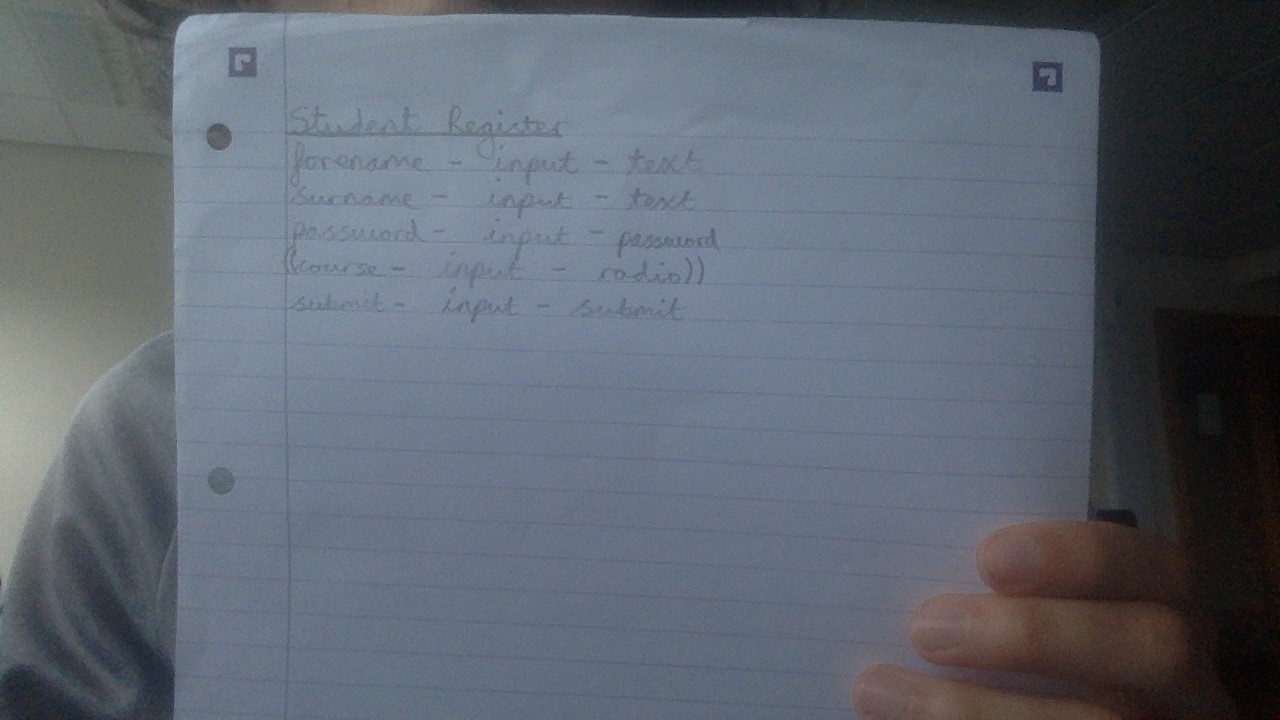 Student Register
forename - input - text
surname - input - text
password - input - password
((course - input - radio))
submit - input - submit